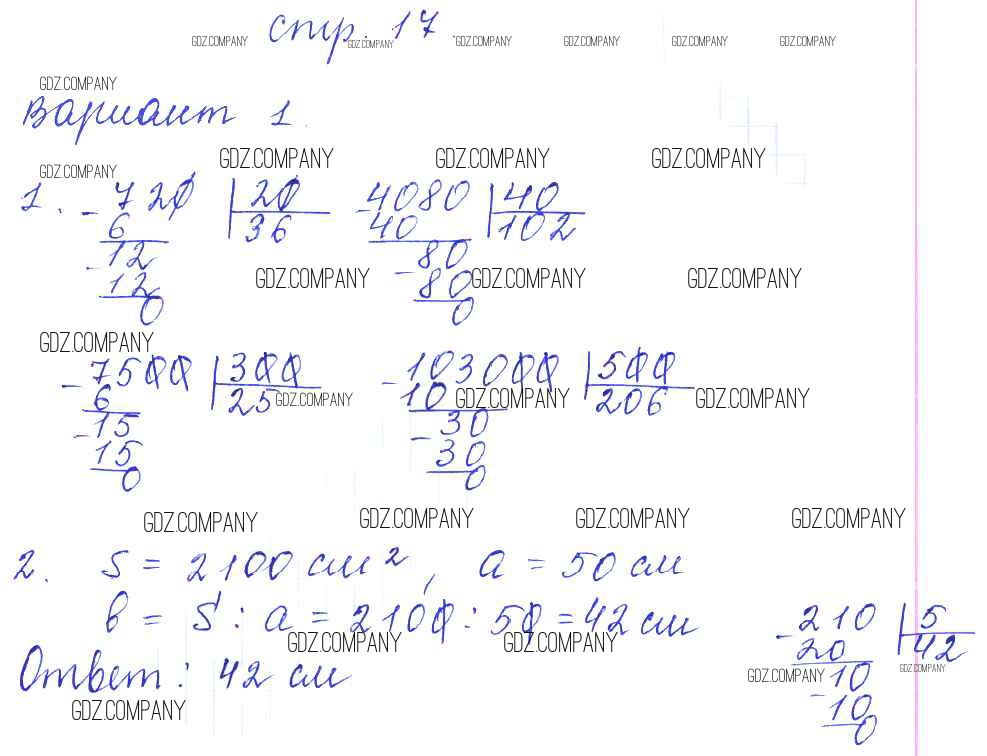 стр. 17
GDZ.COMPANY GDZ.COMPANY GDZ.COMPANY GDZ.COMPANY GDZ.COMPANY GDZ.COMPANY
GDZ.COMPANY
Вариант 1.
GDZ.COMPANY GDZ.COMPANY GDZ.COMPANY
GDZ.COMPANY
1. - 720 | 20 - 4080 | 40
6 36 40 102
- 12 - 80
GDZ.COMPANY GDZ.COMPANY GDZ.COMPANY
12 80
0 0
GDZ.COMPANY
- 7500 | 300 - 103000 | 500
6 25 GDZ.COMPANY 10 GDZ.COMPANY 206 GDZ.COMPANY
- 15 - 30
15 30
0 0
GDZ.COMPANY GDZ.COMPANY GDZ.COMPANY GDZ.COMPANY
2. S = 2100 см², a = 50 см
b = S : a = 2100 : 50 = 42 см - 210 | 5
GDZ.COMPANY GDZ.COMPANY 20 42
Ответ: 42 см GDZ.COMPANY - 10 GDZ.COMPANY
GDZ.COMPANY 10
0